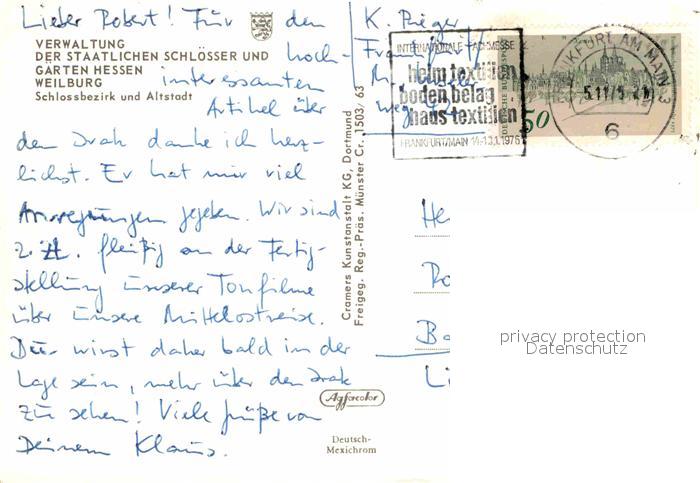 Lieber Robert! Für den
VERWALTUNG
DER STAATLICHEN SCHLÖSSER UND
GÄRTEN HESSEN
WEILBURG
Schlossbezirk und Altstadt
hoch-
interessanten
Artikel über
den Irak danke ich herz-
lichst. Er hat mir viel
Anregungen gegeben. Wir sind
z. Zt. fleißig an der Fertig-
stellung unserer Tonfilme
über unsere Mittelostreise.
Du wirst daher bald in der
Lage sein, mehr über den Irak
zu sehen! Viele Grüße von
Deinem Klaus.
Cramers Kunstanstalt KG, Dortmund
Freigeg. Reg.-Präs. Münster Cr. 1503/63
Agfacolor
Deutsch-
Mexichrom
K. Rieger
INTERNATIONALE FACHMESSE
heimtextilien
bodenbelag
haustextilien
FRANKFURT/MAIN 14-13.1.1976
FRANKFURT AM MAIN 3
5.11.75
6
50
He
Ba
Li
privacy protection
Datenschutz